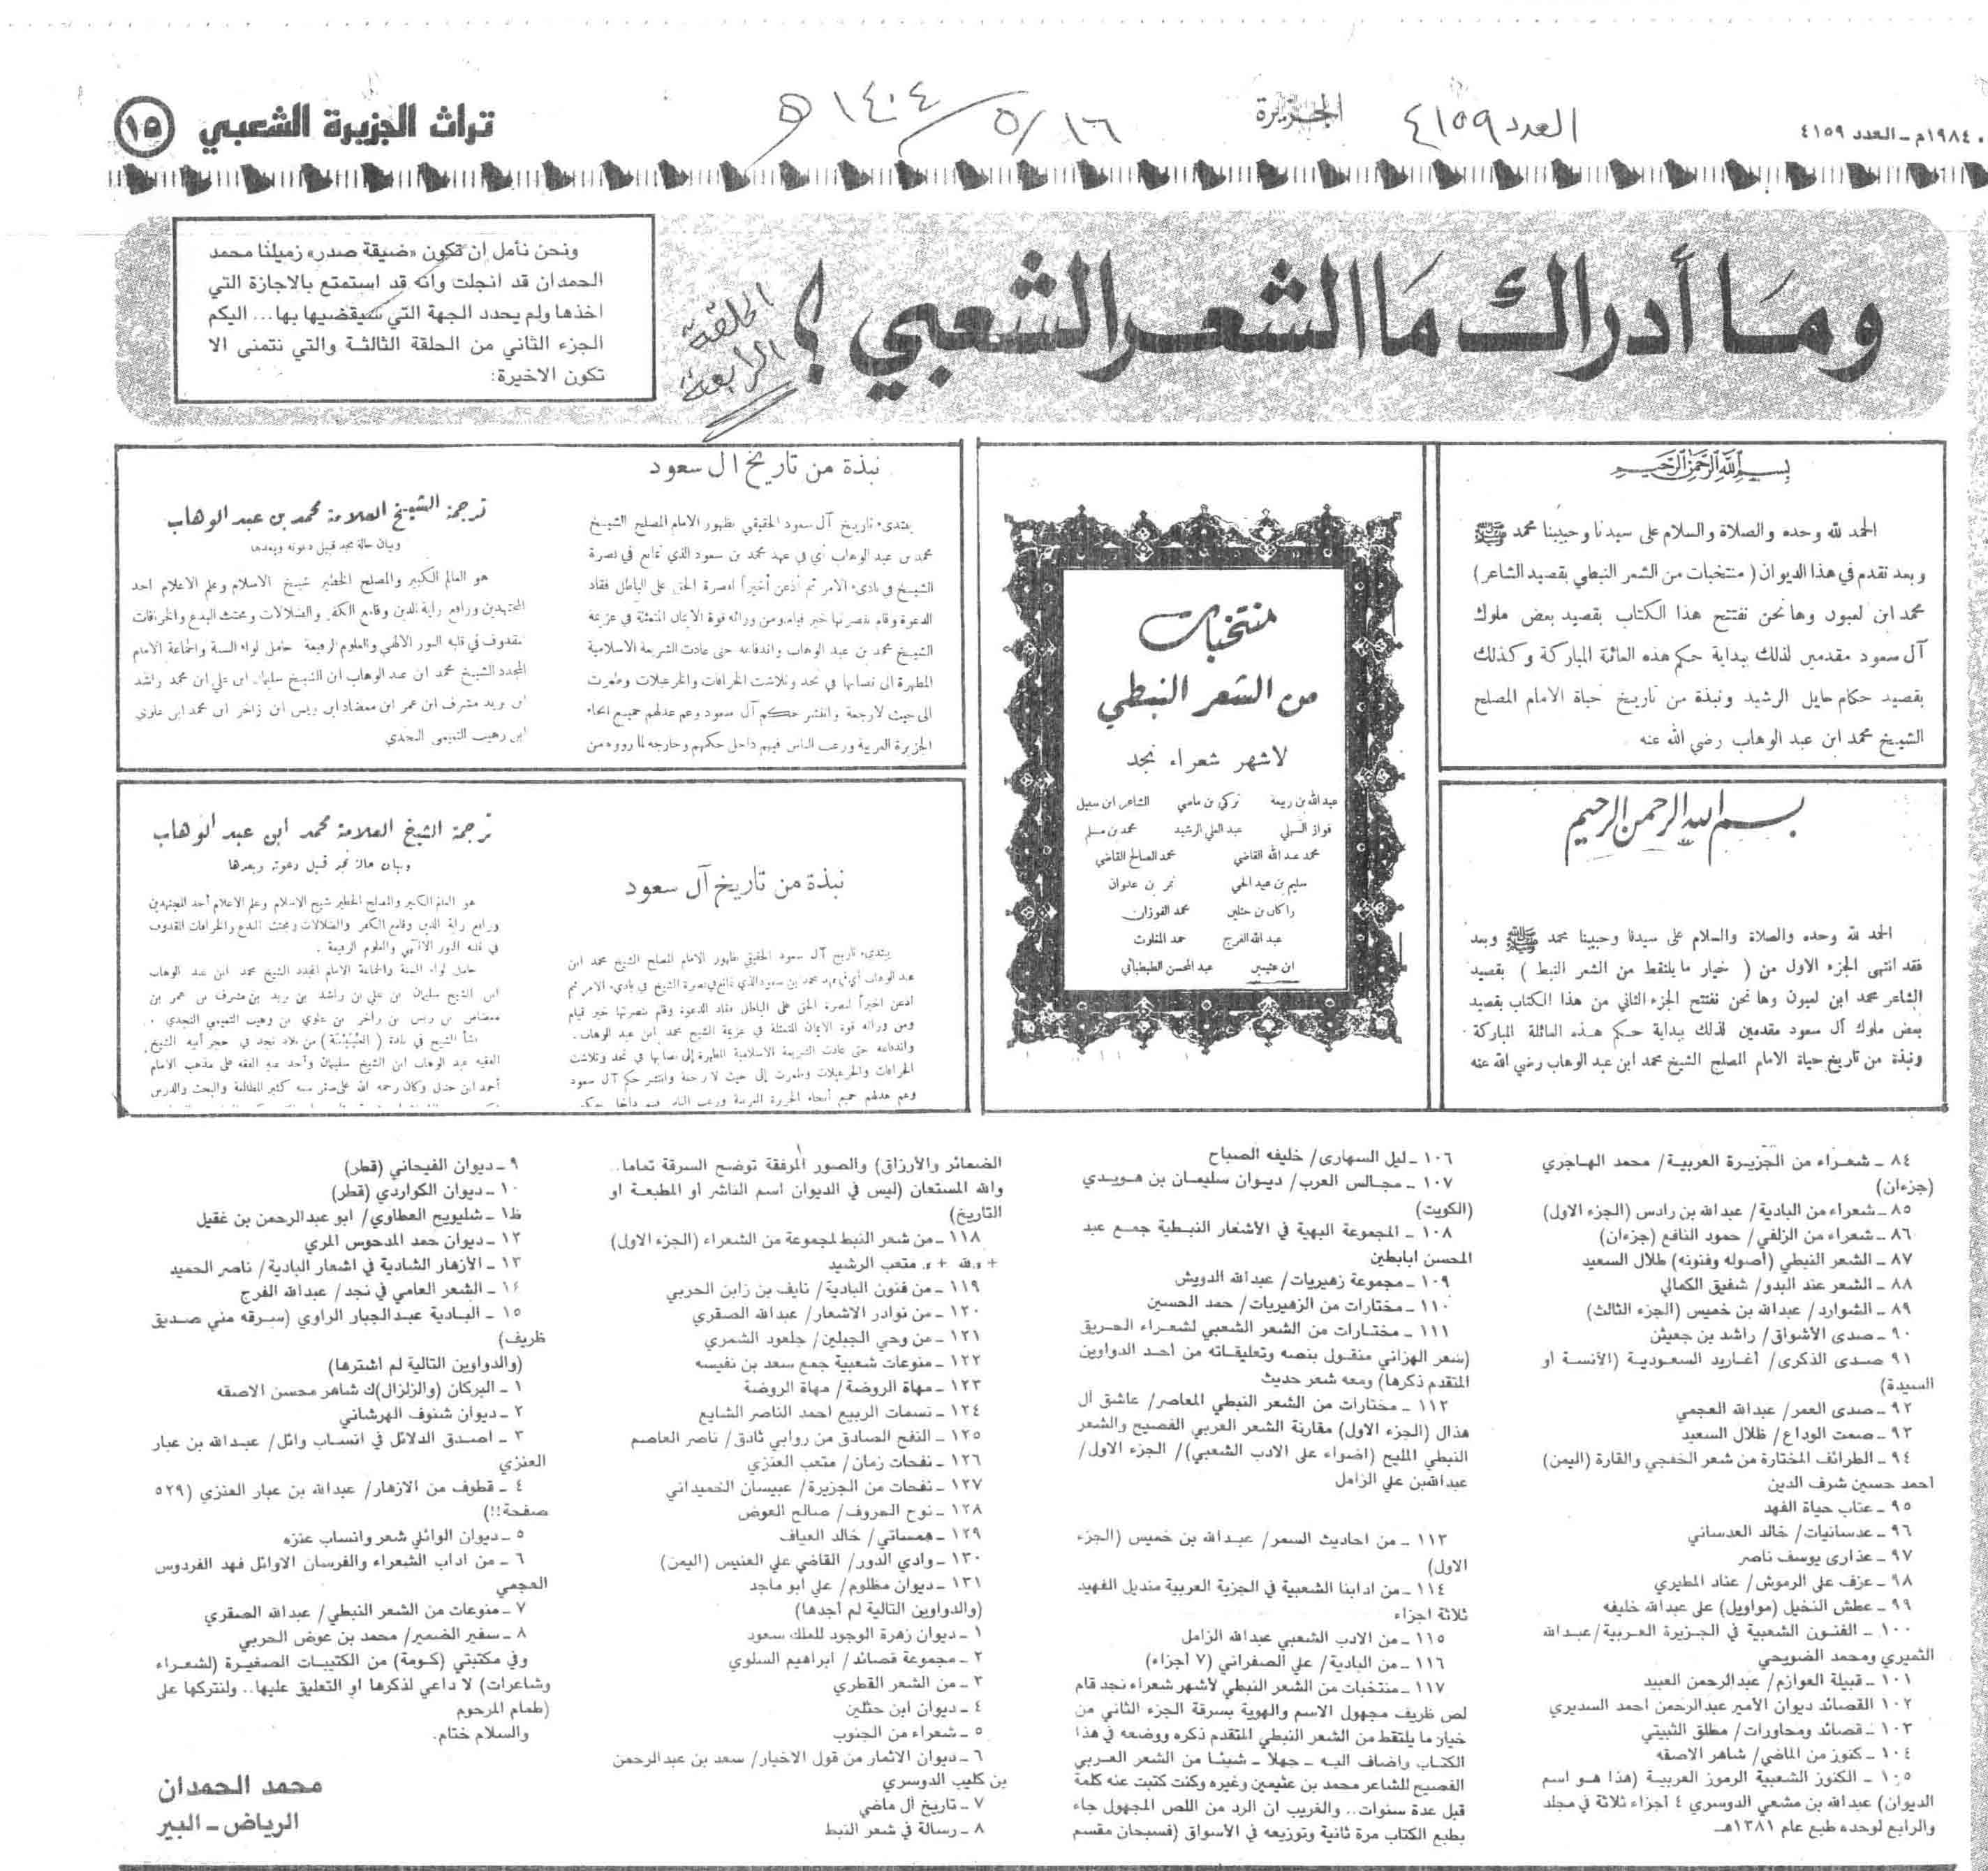 ١٩٨٤م ـ العدد ٤١٥٩
العدد ٤١٥٩
الجزيرة
١٦/٥/١٤٠٤ هـ
تراث الجزيرة الشعبي
١٥
وما أدراك ما الشعر الشعبي ؟!
الحلقة
الرابعة
ونحن نأمل ان تكون «ضيقة صدر» زميلنا محمد
الحمدان قد انجلت وانه قد استمتع بالاجازة التي
اخذها ولم يحدد الجهة التي سيقضيها بها... اليكم
الجزء الثاني من الحلقة الثالثة والتي نتمنى الا
تكون الاخيرة:
بسم الله الرحمن الرحيم
الحمد لله وحده والصلاة والسلام على سيدنا وحبيبنا محمد ﷺ
وبعد نقدم في هذا الديوان ( منتخبات من الشعر النبطي بقصيد الشاعر )
محمد ابن لعبون وها نحن نفتتح هذا الكتاب بقصيد بعض ملوك
آل سعود مقدمين لذلك ببداية حكم هذه العائلة المباركة وكذلك
بقصيد حكام حايل الرشيد ونبذة من تاريخ حياة الامام المصلح
الشيخ محمد ابن عبد الوهاب رضي الله عنه
بسم الله الرحمن الرحيم
الحمد لله وحده والصلاة والسلام على سيدنا وحبيبنا محمد ﷺ وبعد
فقد انتهى الجزء الاول من ( خيار ما يلتقط من الشعر النبط ) بقصيد
الشاعر محمد ابن لعبون وها نحن نفتتح الجزء الثاني من هذا الكتاب بقصيد
بعض ملوك آل سعود مقدمين لذلك ببداية حكم هذه العائلة المباركة
ونبذة من تاريخ حياة الامام المصلح الشيخ محمد ابن عبد الوهاب رضي الله عنه
منتخبات
من الشعر النبطي
لاشهر شعراء نجد
عبدالله بن ربيعة تركي بن ماضي الشاعر ابن سبيل
فواز السهلي عبد العلي الرشيد محمد بن مسلم
محمد عبد الله القاضي محمد الصالح القاضي
سليم بن عبد الحي نمر بن عدوان
راكان بن حثلين محمد الفوزان
عبد الله الفرج حمد المغلوث
ابن عثيمين عبد المحسن الطبطبائي
نبذة من تاريخ آل سعود
يبتدىء تاريخ آل سعود الحقيقي بظهور الامام المصلح الشيخ
محمد بن عبد الوهاب أي في عهد محمد بن سعود الذي مانع في نصرة
الشيخ في بادىء الامر ثم أذعن أخيراً لنصرة الحق على الباطل فقاد
الدعوة وقام بنصرتها خير قيام ومن ورائه قوة الايمان المتمثلة في عزيمة
الشيخ محمد بن عبد الوهاب واندفاعه حتى عادت الشريعة الاسلامية
المطهرة الى نصابها في نجد وتلاشت الخرافات والخزعبلات وطمرت
الى حيث لا رجعة وانتشر حكم آل سعود وعم عدلهم جميع انحاء
الجزيرة العربية ورغب الناس فيهم داخل حكمهم وخارجه لما رووه من
ترجمة الشيخ العلامة محمد بن عبد الوهاب
وبيان حالة نجد قبيل دعوته وبعدها
هو العالم الكبير والمصلح الخطير شيخ الاسلام وعلم الاعلام احد
المجتهدين ورافع راية الدين وقامع الكفر والضلالات ومجتث البدع والخرافات
مقذوف في قلبه النور الالهي والعلوم الرفيعة حامل لواء السنة والجماعة الامام
المجدد الشيخ محمد ابن عبد الوهاب ابن الشيخ سليمان ابن علي ابن محمد راشد
ابن بريد مشرف ابن عمر ابن معضاد ابن ريس ابن زاخر ابن محمد ابن علوي
ابن وهيب التميمي النجدي
نبذة من تاريخ آل سعود
يبتدىء تاريخ آل سعود الحقيقي بظهور الامام المصلح الشيخ محمد ابن
عبد الوهاب أي في عهد محمد بن سعود الذي مانع في نصرة الشيخ في بادىء الامر ثم
اذعن اخيراً لنصرة الحق على الباطل فقاد الدعوة وقام بنصرتها خير قيام
ومن ورائه قوة الايمان المتمثلة في عزيمة الشيخ محمد ابن عبد الوهاب .
واندفاعه حتى عادت الشريعة الاسلامية المطهرة إلى نصابها في نجد وتلاشت
الخرافات والخزعبلات وطمرت إلى حيث لا رجعة وانتشر حكم آل سعود
وعم عدلهم جميع أنحاء الجزيرة العربية ورغب الناس فيهم داخل
ترجمة الشيخ العلامة محمد ابن عبد الوهاب
وبيان حالة نجد قبيل دعوته وبعدها
هو العالم الكبير والمصلح الخطير شيخ الاسلام وعلم الاعلام أحد المجتهدين
ورافع راية الدين وقامع الكفر والضلالات ومجتث البدع والخرافات المقذوف
في قلبه النور الالهي والعلوم الرفيعة .
حامل لواء السنة والجماعة الامام المجدد الشيخ محمد ابن عبد الوهاب
ابن الشيخ سليمان بن علي بن راشد بن بريد بن مشرف بن عمر بن
معضاض بن ريس بن زاخر بن علوي بن وهيب التميمي النجدي .
نشأ الشيخ في بلدة ( العُيَيْنَة ) من بلاد نجد في حجر أبيه الشيخ
الفقيه عبد الوهاب ابن الشيخ سليمان وأخذ عنه الفقه على مذهب الامام
أحمد ابن حنبل وكان رحمه الله على صغر سنه كثير المطالعة والبحث والدرس
٨٤ ـ شعراء من الجزيرة العربية/ محمد الهاجري
(جزءان)
٨٥ ـ شعراء من البادية/ عبدالله بن رادس (الجزء الاول)
٨٦ ـ شعراء من الزلفي/ حمود النافع (جزءان)
٨٧ ـ الشعر النبطي (أصوله وفنونه) طلال السعيد
٨٨ ـ الشعر عند البدو/ شفيق الكمالي
٨٩ ـ الشوارد/ عبدالله بن خميس (الجزء الثالث)
٩٠ ـ صدى الأشواق/ راشد بن جعيثن
٩١ ـ صدى الذكرى/ أغاريد السعودية (الآنسة أو
السيدة)
٩٢ ـ صدى العمر/ عبدالله العجمي
٩٣ ـ صمت الوداع/ طلال السعيد
٩٤ ـ الطرائف المختارة من شعر الخفجي والقارة (اليمن)
احمد حسين شرف الدين
٩٥ ـ عتاب حياة الفهد
٩٦ ـ عدسانيات/ خالد العدساني
٩٧ ـ عذارى يوسف ناصر
٩٨ ـ عزف على الرموش/ عناد المطيري
٩٩ ـ عطش النخيل (مواويل) على عبدالله خليفه
١٠٠ ـ الفنون الشعبية في الجزيرة العربية/ عبدالله
الثميري ومحمد الضويحي
١٠١ ـ قبيلة العوازم/ عبدالرحمن العبيد
١٠٢ القصائد ديوان الأمير عبدالرحمن احمد السديري
١٠٣ ـ قصائد ومحاورات/ مطلق الثبيتي
١٠٤ ـ كنوز من الماضي/ شاهر الاصقه
١٠٥ ـ الكنوز الشعبية الرموز العربية (هذا هو اسم
الديوان) عبدالله بن مشعي الدوسري ٤ أجزاء ثلاثة في مجلد
والرابع لوحده طبع عام ١٣٨١هـ
١٠٦ ـ ليل السهارى/ خليفه الصباح
١٠٧ ـ مجالس العرب/ ديوان سليمان بن هويدي
(الكويت)
١٠٨ ـ المجموعة البهية في الأشعار النبطية جمع عبد
المحسن ابابطين
١٠٩ ـ مجموعة زهيريات/ عبدالله الدويش
١١٠ ـ مختارات من الزهيريات/ حمد الحسين
١١١ ـ مختارات من الشعر الشعبي لشعراء الحريق
(شعر الهزاني منقول بنصه وتعليقاته من أحد الدواوين
المتقدم ذكرها) ومعه شعر حديث
١١٢ ـ مختارات من الشعر النبطي المعاصر/ عاشق آل
هذال (الجزء الاول) مقارنة الشعر العربي الفصيح والشعر
النبطي المليح (اضواء على الادب الشعبي)/ الجزء الاول/
عبدالله بن علي الزامل
١١٣ ـ من احاديث السمر/ عبدالله بن خميس (الجزء
الاول)
١١٤ ـ من ادابنا الشعبية في الجزية العربية منديل الفهيد
ثلاثة اجزاء
١١٥ ـ من الادب الشعبي عبدالله الزامل
١١٦ ـ من البادية/ علي الصفراني (٧ أجزاء)
١١٧ ـ منتخبات من الشعر النبطي لأشهر شعراء نجد قام
لص ظريف مجهول الاسم والهوية بسرقة الجزء الثاني من
خيار ما يلتقط من الشعر النبطي المتقدم ذكره ووضعه في هذا
الكتاب واضاف اليه ـ جهلا ـ شيئا من الشعر العربي
الفصيح للشاعر محمد بن عثيمين وغيره وكنت كتبت عنه كلمة
قبل عدة سنوات.. والغريب ان الرد من اللص المجهول جاء
بطبع الكتاب مرة ثانية وتوزيعه في الأسواق (فسبحان مقسم
الضمائر والأرزاق) والصور المرفقة توضح السرقة تماما..
والله المستعان (ليس في الديوان اسم الناشر أو المطبعة او
التاريخ)
١١٨ ـ من شعر النبط لمجموعة من الشعراء (الجزء الاول)
متعب الرشيد
١١٩ ـ من فنون البادية/ نايف بن زابن الحربي
١٢٠ ـ من نوادر الاشعار/ عبدالله الصقري
١٢١ ـ من وحي الجبلين/ جلعود الشمري
١٢٢ ـ منوعات شعبية جمع سعد بن نفيسه
١٢٣ ـ مهاة الروضة/ مهاة الروضة
١٢٤ ـ نسمات الربيع احمد الناصر الشايع
١٢٥ ـ النفح الصادق من روابي ثادق/ ناصر العاصم
١٢٦ ـ نفحات زمان/ متعب العنزي
١٢٧ ـ نفحات من الجزيرة/ عبيسان الحميداني
١٢٨ ـ نوح الحروف/ صالح العوض
١٢٩ ـ همساتي/ خالد العياف
١٣٠ ـ وادي الدور/ القاضي علي العنيس (اليمن)
١٣١ ـ ديوان مظلوم/ علي ابو ماجد
(والدواوين التالية لم أجدها)
١ ـ ديوان زهرة الوجود للملك سعود
٢ ـ مجموعة قصائد/ ابراهيم السلوي
٣ ـ من الشعر القطري
٤ ـ ديوان ابن حثلين
٥ ـ شعراء من الجنوب
٦ ـ ديوان الاثمار من قول الاخيار/ سعد بن عبدالرحمن
بن كليب الدوسري
٧ ـ تاريخ آل ماضي
٨ ـ رسالة في شعر النبط
٩ ـ ديوان الفيحاني (قطر)
١٠ ـ ديوان الكواردي (قطر)
ظ١ ـ شليويح العطاوي/ ابو عبدالرحمن بن عقيل
١٢ ـ ديوان حمد المدحوس المري
١٣ ـ الأزهار الشادية في اشعار البادية/ ناصر الحميد
١٤ ـ الشعر العامي في نجد/ عبدالله الفرج
١٥ ـ البادية عبدالجبار الراوي (سرقه مني صديق
ظريف)
(والدواوين التالية لم اشترها)
١ ـ البركان (والزلزال) ك شاهر محسن الاصقه
٢ ـ ديوان شنوف الهرشاني
٣ ـ اصدق الدلائل في انساب وائل/ عبدالله بن عبار
العنزي
٤ ـ قطوف من الازهار/ عبدالله بن عبار العنزي (٥٢٩
صفحة!!)
٥ ـ ديوان الوائلي شعر وانساب عنزه
٦ ـ من اداب الشعراء والفرسان الاوائل فهد الفردوس
العجمي
٧ ـ منوعات من الشعر النبطي/ عبدالله الصقري
٨ ـ سفير الضمير/ محمد بن عوض الحربي
وفي مكتبتي (كومة) من الكتيبات الصغيرة (لشعراء
وشاعرات) لا داعي لذكرها او التعليق عليها.. ولنتركها على
(طعام المرحوم
والسلام ختام.
محمد الحمدان
الرياض ـ البير